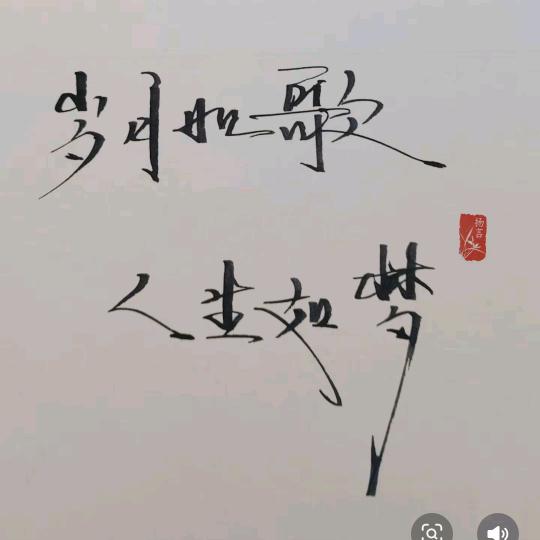 岁月如歌
人生如梦
扬言